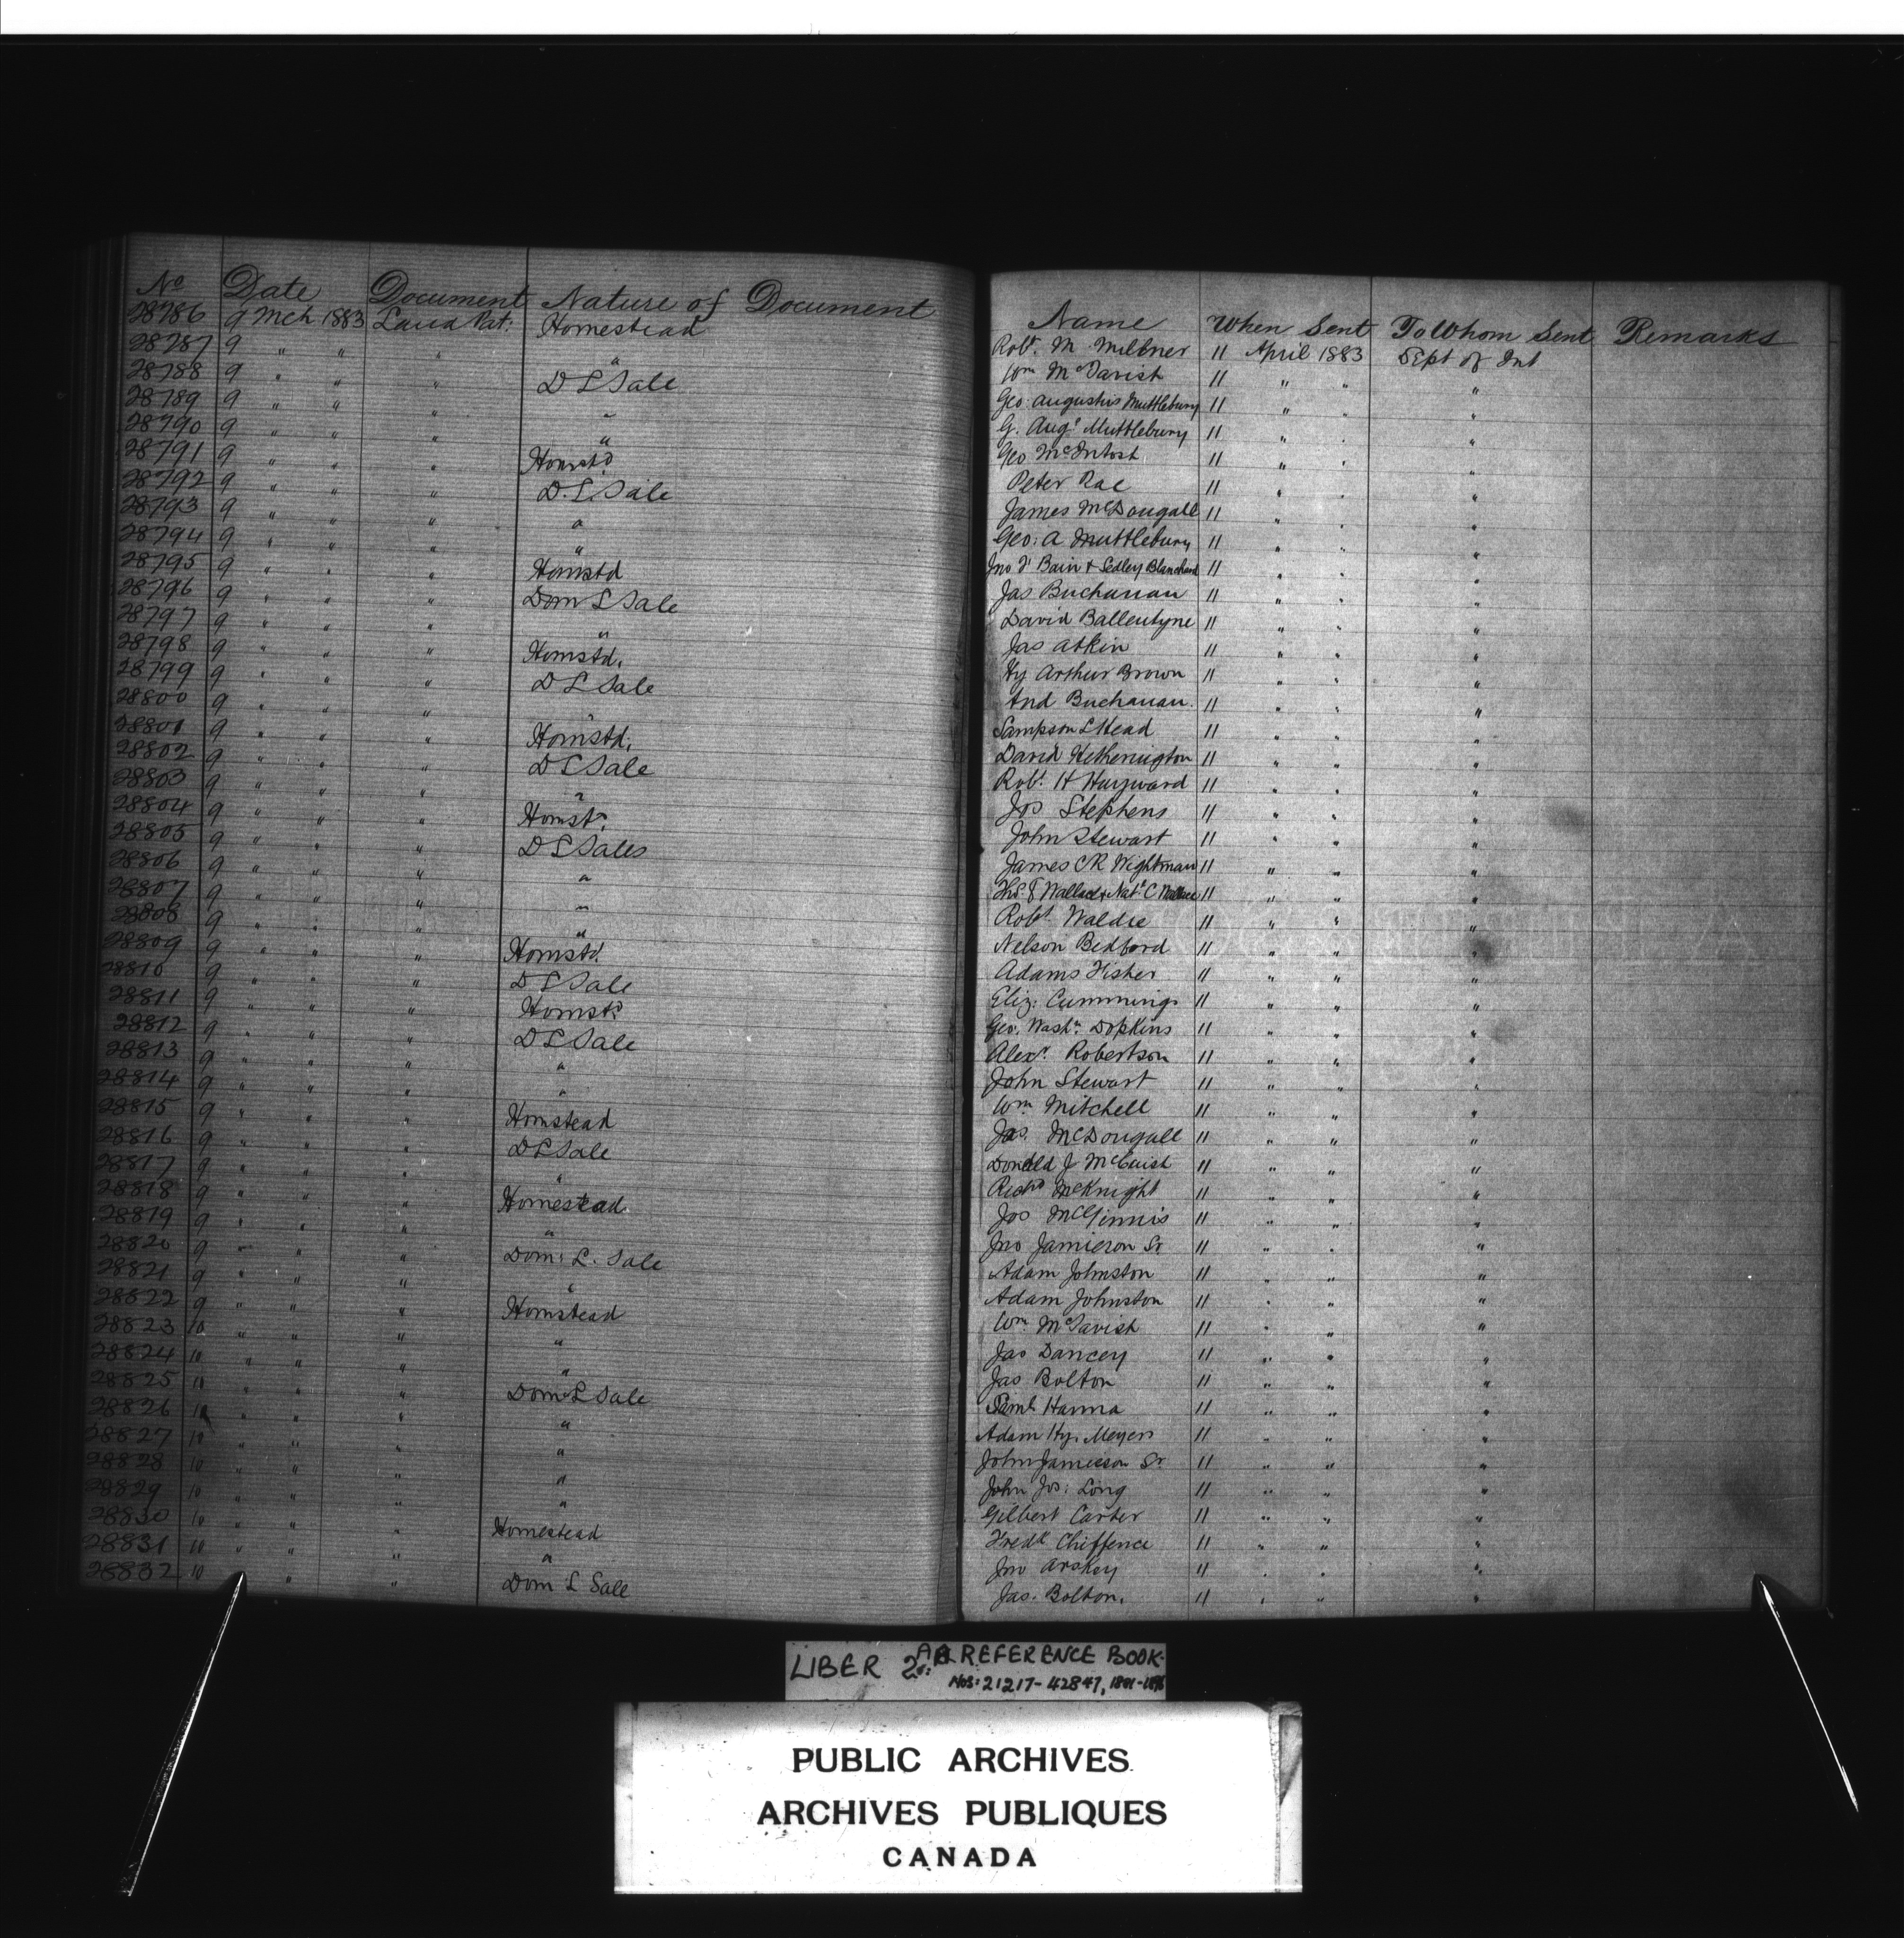 No Date Document Nature of Document Name When Sent To Whom Sent Remarks
28786 9 Mch 1883 Land Pat: Homestead Robt. M Milbner 11 April 1883 Dept of Int
28787 9 " " " " Wm McTavish 11 " " "
28788 9 " " " D L Sale Geo: Augustus Muttlebury 11 " " "
28789 9 " " " " G. Augs Muttlebury 11 " " "
28790 9 " " " " Geo McIntosh 11 " " "
28791 9 " " " Homstd Peter Rae 11 " " "
28792 9 " " " D. L. Sale James McDougall 11 " " "
28793 9 " " " " Geo: A Muttlebury 11 " " "
28794 9 " " " " Jno F Bain & Sedley Blanchard 11 " " "
28795 9 " " " Homstd Jas Buchanan 11 " " "
28796 9 " " " Dom L Sale David Ballentyne 11 " " "
28797 9 " " " " Jas Atkin 11 " " "
28798 9 " " " Homstd. Hy Arthur Brown 11 " " "
28799 9 " " " D L Sale And Buchanan. 11 " " "
28800 9 " " " " Sampson L Head 11 " " "
28801 9 " " " Homstd. David Hetherington 11 " " "
28802 9 " " " D L Sale Robt. H Hayward 11 " " "
28803 9 " " " " Jos Stephens 11 " " "
28804 9 " " " Homstd John Stewart 11 " " "
28805 9 " " " D L Sales James C R Wightman 11 " " "
28806 9 " " " " Ths F Wallace & Natl C Wallace 11 " " "
28807 9 " " " " Robt Waldie 11 " " "
28808 9 " " " " Nelson Bedford 11 " " "
28809 9 " " " Homstd. Adams Fisher 11 " " "
28810 9 " " " D L Sale Eliz: Cummings 11 " " "
28811 9 " " " Homstd Geo. Washn. Dopkins 11 " " "
28812 9 " " " D L Sale Alexr. Robertson 11 " " "
28813 9 " " " " John Stewart 11 " " "
28814 9 " " " " Wm Mitchell 11 " " "
28815 9 " " " Homstead Jas. McDougall 11 " " "
28816 9 " " " D L Sale Donald J McCuish 11 " " "
28817 9 " " " " Richd McKnight 11 " " "
28818 9 " " " Homestead Jos McGinnis 11 " " "
28819 9 " " " " Jno Jamieson Sr. 11 " " "
28820 9 " " " Dom: L. Sale Adam Johnston 11 " " "
28821 9 " " " " Adam Johnston 11 " " "
28822 9 " " " Homstead Wm. McTavish 11 " " "
28823 10 " " " " Jas Dancey 11 " " "
28824 10 " " " " Jas Bolton 11 " " "
28825 10 " " " Dom L Sale Saml. Hanna 11 " " "
28826 10 " " " " Adam Hy. Meyers 11 " " "
28827 10 " " " " John Jamieson Sr 11 " " "
28828 10 " " " " John Jos: Long 11 " " "
28829 10 " " " " Gilbert Carter 11 " " "
28830 10 " " " Homestead Fredk Chiffence 11 " " "
28831 10 " " " " Jno Arskey 11 " " "
28832 10 " " " Dom L Sale Jas. Bolton. 11 " " "
LIBER 2 REFERENCE BOOK-
Nos: 21217-42847,
PUBLIC ARCHIVES
ARCHIVES PUBLIQUES
CANADA